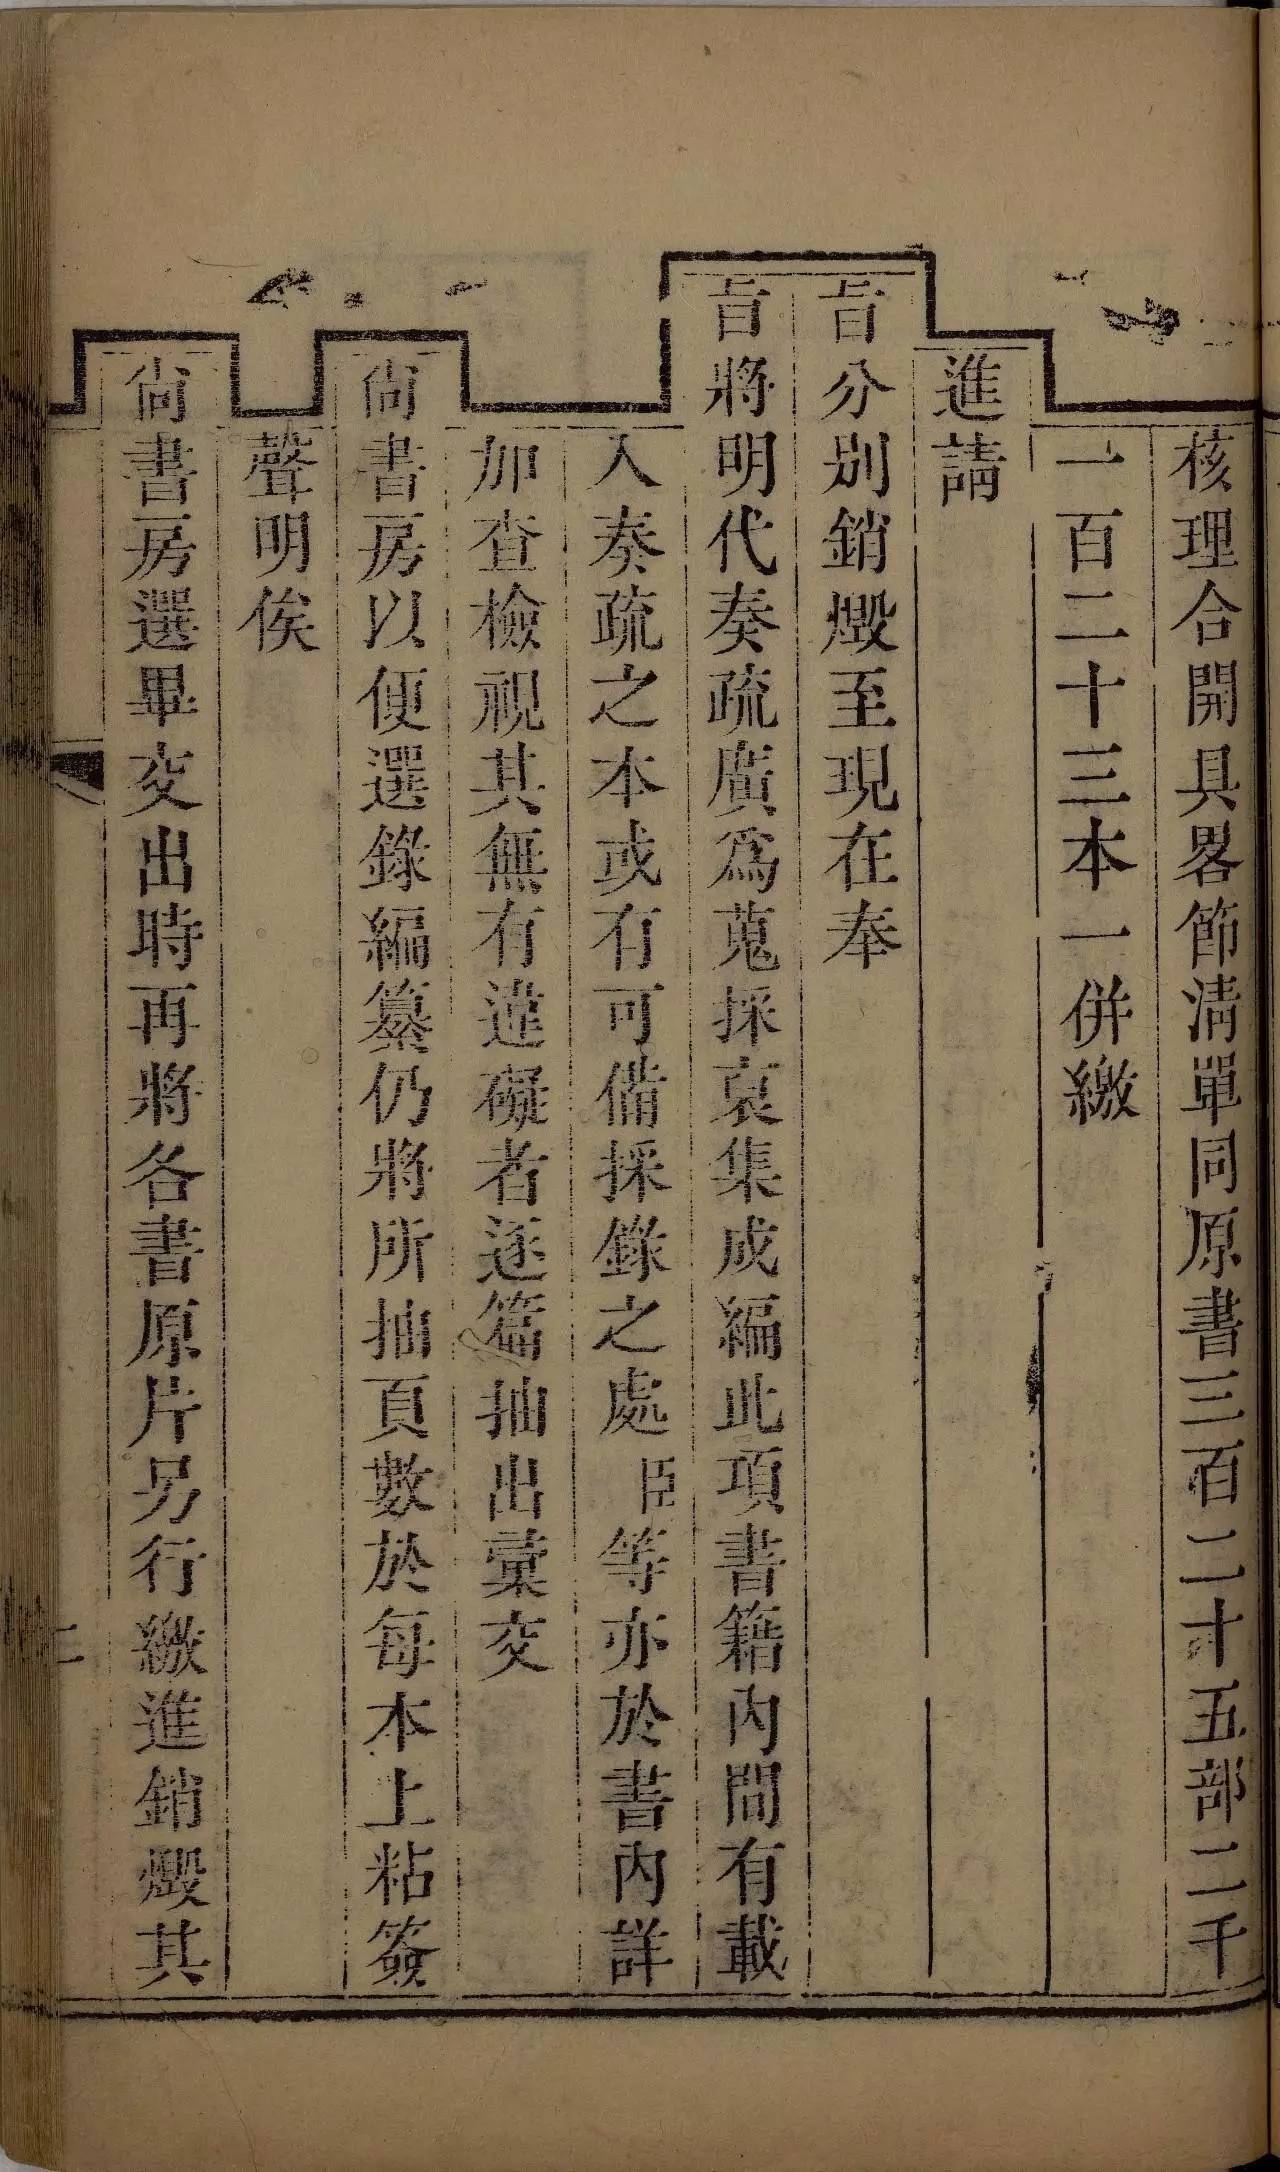 核理合開具畧節清單同原書三百二十五部二千
一百二十三本一併繳
進請
旨分別銷燬至現在奉
旨將明代奏疏廣爲蒐採裒集成編此項書籍內間有載
入奏疏之本或有可備採錄之處臣等亦於書內詳
加查檢視其無有違礙者逐篇抽出彙交
尙書房以便選錄編纂仍將所抽頁數於每本上粘簽
聲明俟
尙書房選畢交出時再將各書原片另行繳進銷燬其
二